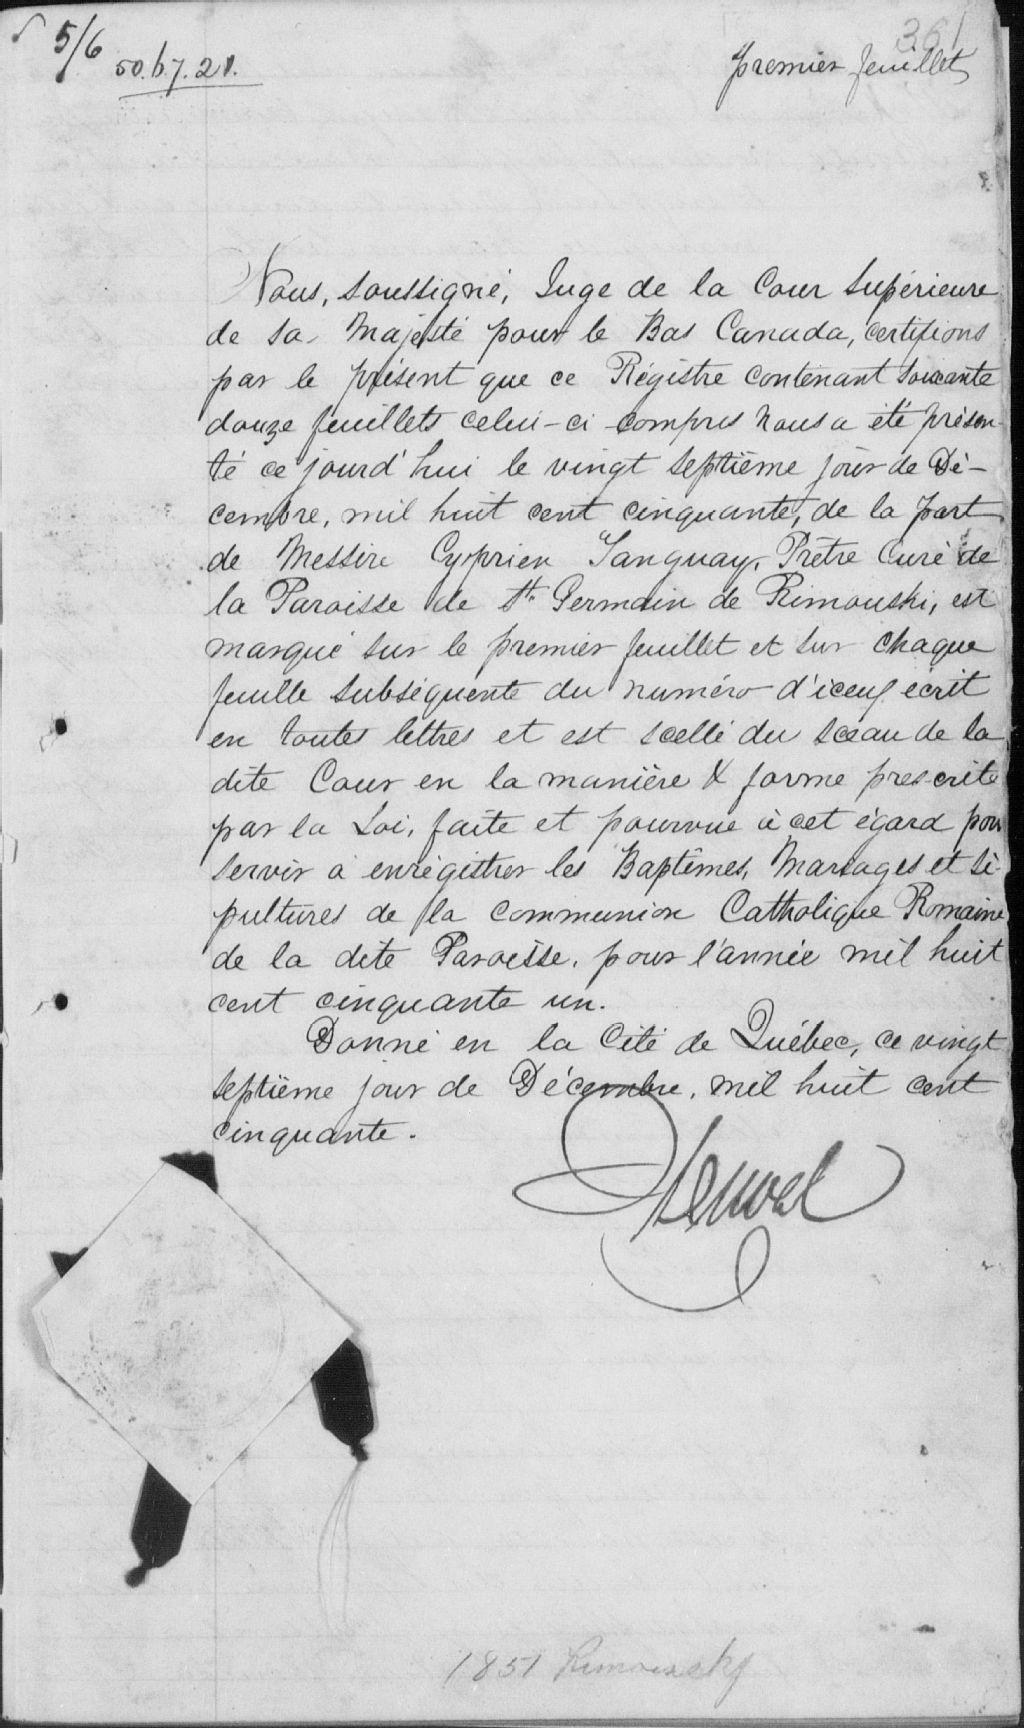 5/6
50.67.21.
361
premier feuillet
Nous, soussigné, Juge de la Cour Supérieure
de Sa Majesté pour le Bas Canada, certifions
par le présent que ce Régistre contenant soixante
douze feuillets celui-ci compris nous a été présen-
té ce jourd'hui le vingt septième jour de Dé-
cembre, mil huit cent cinquante, de la part
de Messire Cyprien Tanguay, Prêtre Curé de
la Paroisse de St. Germain de Rimouski, est
marqué sur le premier feuillet et sur chaque
feuille subséquente du numéro d'iceux écrit
en toutes lettres et est scellé du sceau de la
dite Cour en la manière & forme prescrite
par la Loi, faite et pourvue à cet égard pour
servir à enrégistrer les Baptêmes, Mariages et Sé-
pultures de la communion Catholique Romaine
de la dite Paroisse, pour l'année mil huit
cent cinquante un.
Donné en la Cité de Québec, ce vingt
septième jour de Décembre, mil huit cent
cinquante.
1851 Rimousky